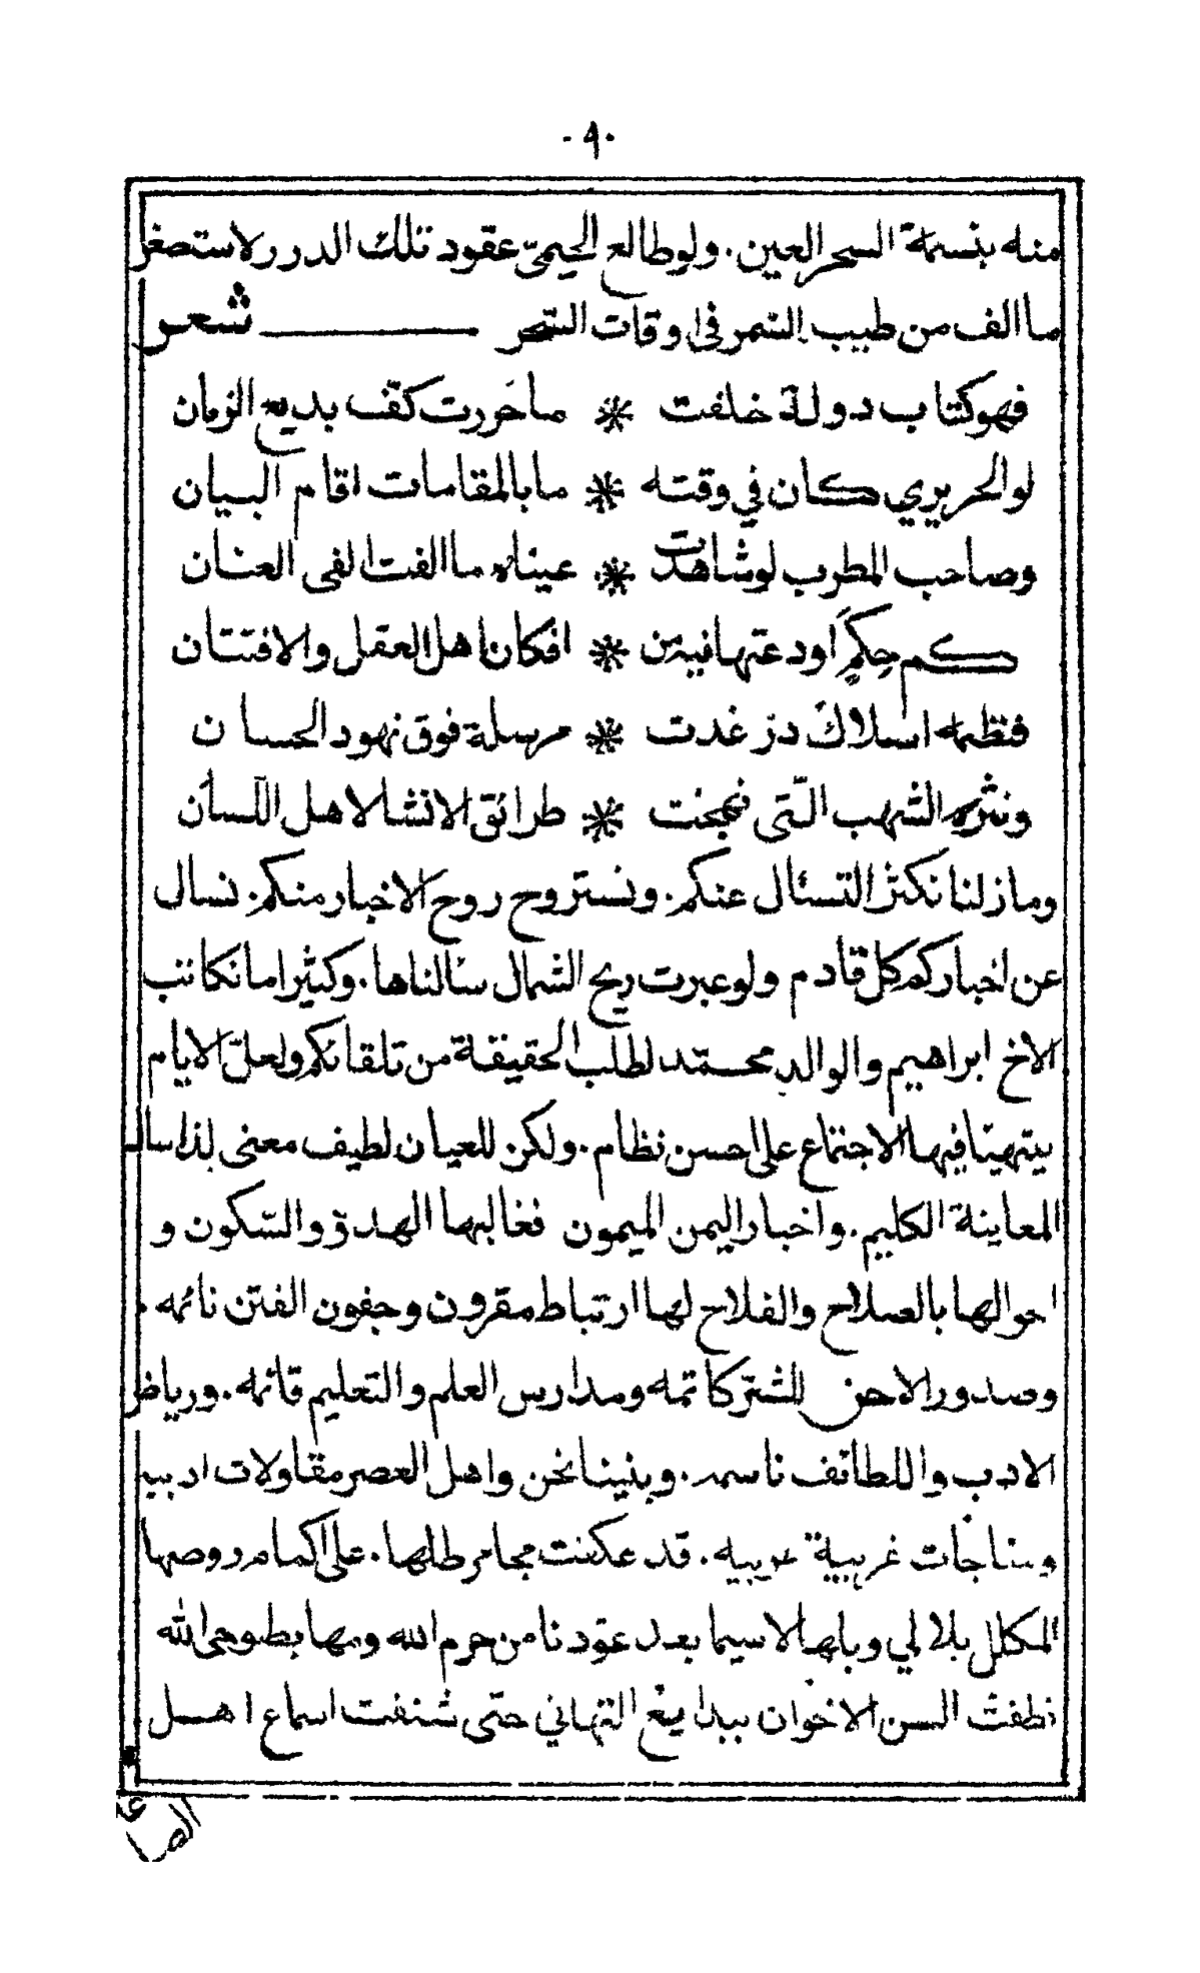 ٩٠
منه بنسمة السحر العين. ولو طالع الحيميّ عقود تلك الدرر لاستصغر
ما الف من طيب السّمر في اوقات السّحر شعر
فهو كتاب دولة خلفت ✻ ما حررت كفّ بديع الزمان
لو الحريري كان في وقته ✻ ما بالمقامات اقام البيان
وصاحب المطرب لو شاهدت ✻ عيناه ما الفت الفى العنان
كم حِكمٍ اودعتها نبذة ✻ افكار اهل العقل والافتتان
فنظمه اسلاك درّ غدت ✻ مرسلة فوق نهود الحسان
ونثره الشهب الّتى نجمت ✻ طرائق الانشا لاهل اللسان
وما زلنا نكثر التسئال عنكم. ونستروح روح الاخبار منكم. نسال
عن اخباركم كل قادم ولو عبرت ريح الشمال سئالناها. وكثيرا ما نكاتب
الاخ ابراهيم والوالد محمّد لطلب الحقيقة من تلقائكم ولعلّ الايام
يتهيّا فيها الاجتماع على احسن نظام. ولكن للعيان لطيف معنى لذا سال
المعاينة الكليم. واخبار اليمن الميمون فغالبها الهدوّ والسّكون و
احوالها بالصلاح والفلاح لها ارتباط مقرون وجفون الفتن نائمه.
وصدور الاحن للشرّ كاتمه ومدارس العلم والتعليم قائمه. ورياض
الادب واللطائف ناسمه. وبيننا نحن واهل العصر مقاولات ادبيه
ومناجات غريبية عربيه. قد عكفت مجامر طلها. على اكمام روضها
المكلل بلالي وبلها لاسيما بعد عوّدنا من حرم الله ومهابط وحى الله
نطقت السن الاخوان ببدايع التهاني حتّى شنفت اسماع اهل